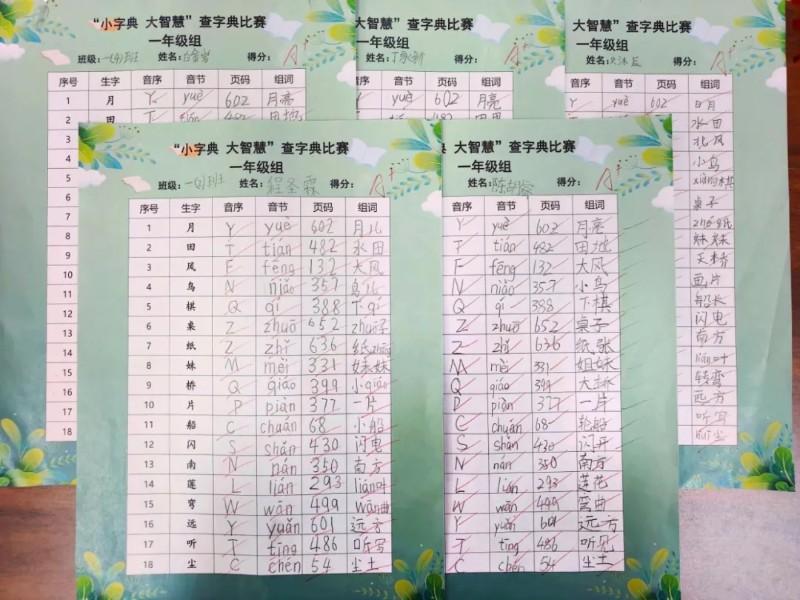 “小字典 大智慧”查字典比赛
一年级组
班级： 姓名： 得分：A+
序号 生字 音序 音节 页码 组词
1 月 Y yuè 602 月亮
2 田
3
4
5
6
7
8
9
10
11
12
13
14
15
16
17
18
大智慧”查字典比赛
一年级组
姓名： 得分：A+
音序 音节 页码 组词
yuè 602 月亮
大智慧”查字典比赛
一年级组
姓名： 得分：
音序 音节 页码 组词
Y yuè 602 日月
水田
北风
小鸟
桌子
妹妹
画片
船长
闪电
南方
lián叶
转弯
远方
听写
“小字典 大智慧”查字典比赛
一年级组
班级： 姓名：程圣霖 得分：A+
序号 生字 音序 音节 页码 组词
1 月 Y yuè 602 月儿
2 田 T tián 482 水田
3 风 F fēng 132 大风
4 鸟 N niǎo 357 鸟儿
5 棋 Q qí 388 下qí
6 桌 Z zhuō 652 zhuō子
7 纸 Z zhǐ 636 纸zhāng
8 妹 M mèi 331 妹妹
9 桥 Q qiáo 399 小qiáo
10 片 P piàn 377 一片
11 船 C chuán 68 小船
12 闪 S shǎn 430 闪电
13 南 N nán 350 南方
14 莲 L lián 293 lián叶
15 弯 W wān 499 wān曲
16 远 Y yuǎn 601 远方
17 听 T tīng 486 听写
18 尘 C chén 54 尘土
典 大智慧”查字典比赛
一年级组
姓名： 得分：A+
音序 音节 页码 组词
Y yuè 602 月亮
T tián 482 田地
F fēng 132 大风
N niǎo 357 小鸟
Q qí 388 下棋
Z zhuō 652 桌子
Z zhǐ 636 纸张
M mèi 331 姐妹
Q qiáo 399 大桥
P piàn 377 一片
C chuán 68 轮船
S shǎn 430 闪开
N nán 350 南方
L lián 293 莲花
W wān 499 弯曲
Y yuǎn 601 远方
T tīng 486 听见
C chén 54 尘土